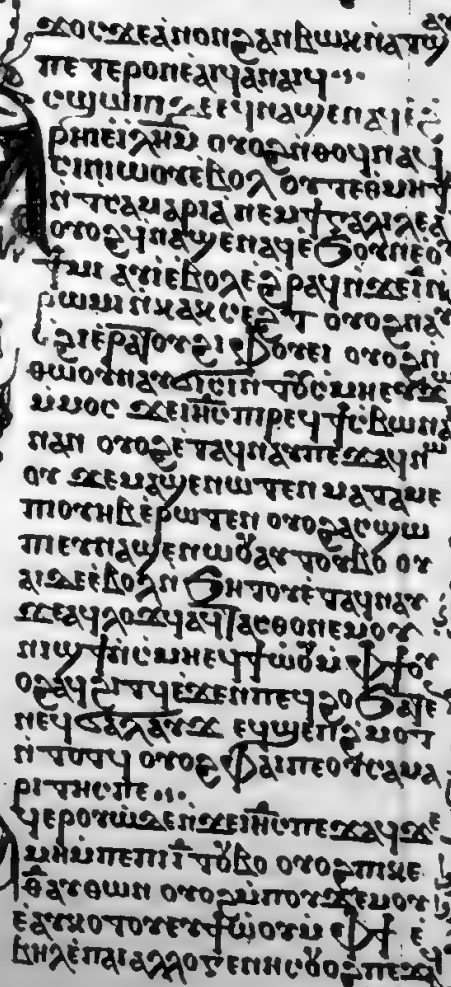 ϫⲟⲥ ϫⲉ ⲁⲛⲟⲛ ϩⲁⲛⲃⲱⲕ ⲛⲁⲧϣⲁⲩ
ⲡⲉⲧⲉⲣⲟⲛ ⲉⲁⲓϥ ⲁⲛⲁⲓϥ
ⲥϣⲱⲡⲓ ⲉϥⲛⲁϣⲉⲛⲁϥ ⲉ
ⲣⲏⲉⲓⲗⲏⲙ ⲟⲩⲟϩ ⲛⲑⲟϥ ⲛⲁϥ
ⲥⲓⲛⲓⲱⲟⲩ ⲉⲃⲟⲗ ⲟⲩⲧⲉ ⲑⲙⲏϯ
ⲛⲧⲥⲁⲙⲁⲣⲓⲁ ⲛⲉⲙ ϯⲅⲁⲗⲓⲗⲉⲁ
ⲟⲩⲟϩ ϥⲛⲁϣⲉⲛⲁϥ ⲉϧⲟⲩⲛ ⲉⲟ
ϯⲙⲓ ⲁⲩⲓ ⲉⲃⲟⲗ ⲉϩⲣⲁϥ ⲛϫⲉ ⲓ̅ ⲛ
ⲣⲱⲙⲓ ⲛⲕⲁⲕⲥⲉϩⲧ ⲟⲩⲟϩ ⲛⲁⲩ
ϩⲓⲉⲣⲁⲧⲟⲩ ϩⲓⲫⲟⲩⲉⲓ ⲟⲩⲟϩ ⲛ
ⲑⲱⲟⲩ ⲛⲁⲩϭⲓⲥⲓ ⲛⲧⲟⲩⲥⲙⲏ ⲉⲩϫⲱ
ⲙⲙⲟⲥ ϫⲉ ⲓⲏ̅ⲥ ⲡⲣⲉϥϯⲥⲃⲱ ⲛⲁ
ⲛⲁⲛ ⲟⲩⲟϩ ⲉⲧⲁϥⲛⲁⲩ ⲡⲉϫⲁϥ ⲛⲱ
ⲟⲩ ϫⲉ ⲙⲁϣⲉⲛⲱⲧⲉⲛ ⲙⲁⲧⲁⲙⲉ
ⲛⲓⲟⲩⲏⲃ ⲉⲣⲱⲧⲉⲛ ⲟⲩⲟϩ ⲁⲥϣⲱ
ⲡⲓ ⲉⲩⲛⲁϣⲉⲛⲱⲟⲩ ⲁⲩⲧⲟⲩⲃⲟ ⲟⲩ
ⲁⲓ ⲇⲉ ⲉⲃⲟⲗ ⲛϧⲏⲧⲟⲩ ⲉⲧⲁϥⲛⲁⲩ
ϫⲉ ⲁϥⲗⲟϫϥ ⲁϥⲧⲁⲥⲑⲟ ⲛⲉⲙ ⲟⲩ
ⲛⲓϣϯ ⲛⲥⲙⲏ ⲉϥϯⲱⲟⲩ ⲙⲫϯ ⲟⲩ
ⲟϩ ⲁϥϩⲓⲧϥ ⲉϫⲉⲛ ⲡⲉϥϩⲟ ϧⲁⲧⲉ
ⲛⲉϥϭⲁⲗⲁⲩϫ ⲉϥϣⲉⲡϩⲙⲟⲧ
ⲛⲧⲟⲧϥ ⲟⲩⲟϩ ⲫⲁⲓ ⲛⲉ ⲟⲩⲥⲁⲙⲁ
ⲣⲓⲧⲏⲥ ⲡⲉ
ϥⲉⲣⲟⲩⲱ ⲇⲉ ⲛϫⲉ ⲓⲏ̅ⲥ ⲡⲉϫⲁϥ ϫⲉ
ⲙⲏ ⲙⲡⲉ ⲡⲓ ⲓ̅ ⲧⲟⲩⲃⲟ ⲟⲩⲟϩ ⲡⲓⲕⲉ
ⲑ̅ ⲁⲩⲑⲱⲛ ⲟⲩⲟϩ ⲙⲡⲟⲩϫⲉⲙⲟⲩ
ⲉⲁⲩⲕⲟⲧⲟⲩ ⲉϯⲱⲟⲩ ⲙⲫϯ ⲉ
ⲃⲏⲗ ⲉⲡⲁⲓⲁⲗⲗⲟⲅⲉⲛⲏⲥ ⲟⲩⲟϩ ⲡⲉϫⲁϥ